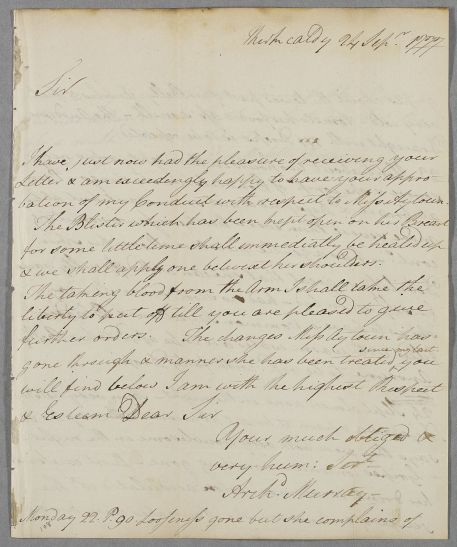 Kirkcaldy 24 Sepr. 1777
Sir
I have just now had the pleasure of receiving your
Letter & am exceedingly happy to have your appro-
bation of my Conduct with respect to Miss Aytoun.
The Blister which has been kept open on her Breast
for some little time shall immediatly be healed up
& we shall apply one betwixt her shoulders.
The taking blood from the Arm I shall take the
liberty to put off till you are pleased to give
further orders. The changes Miss Aytoun has
gone through & manner she has been treated since my last you
will find below I am with the highest Respect
& Esteem Dear Sir
Your much obliged &
very hum: Servt
Archd. Murray
Monday 22. P. 90 Looseness gone but she complains of